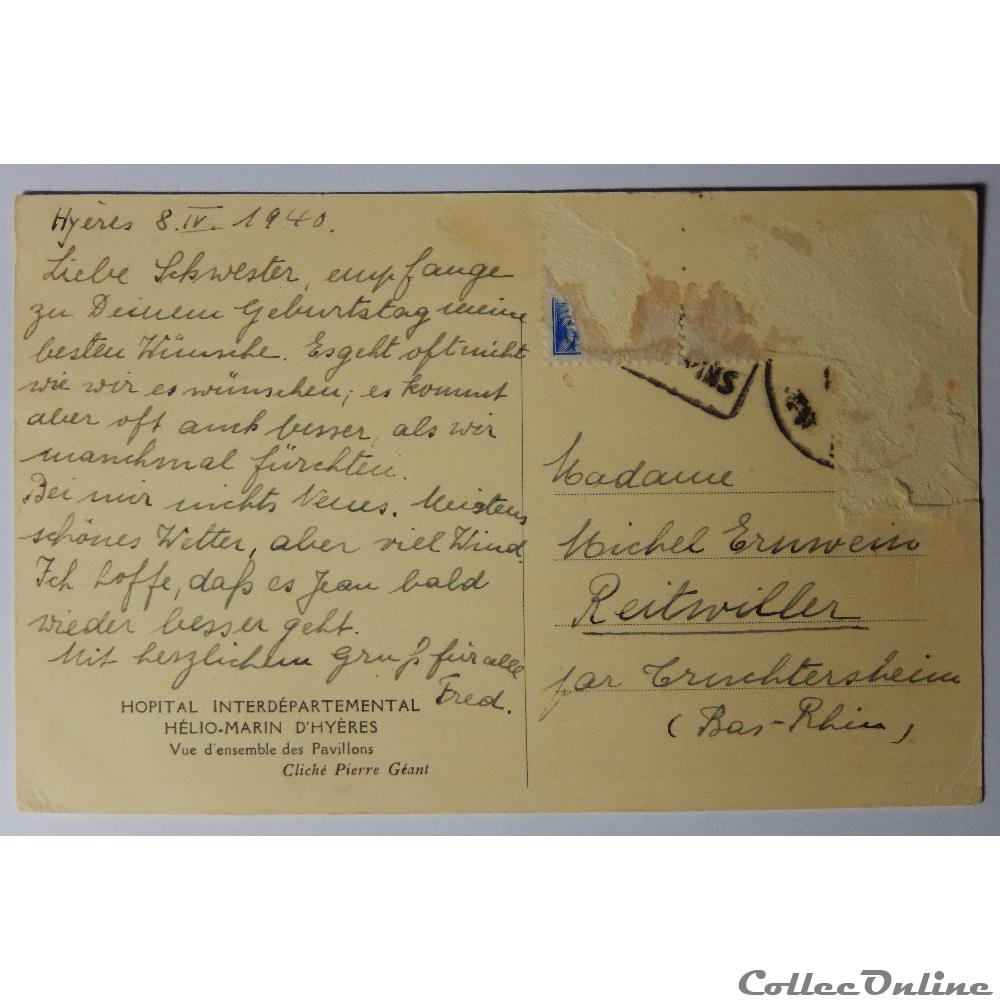 Hyères 8.IV. 1940.
Liebe Schwester, empfange
zu Deinem Geburtstag meine
besten Wünsche. Es geht oft nicht
wie wir es wünschen; es kommt
aber oft auch besser, als wir
manchmal fürchten.
Bei mir nichts Neues. Meistens
schönes Wetter, aber viel Wind.
Ich hoffe, daß es Jean bald
wieder besser geht.
Mit herzlichem Gruß für alle
Fred.
HOPITAL INTERDÉPARTEMENTAL
HÉLIO-MARIN D'HYÈRES
Vue d'ensemble des Pavillons
Cliché Pierre Géant
Madame
Michel Ernwein
Reitwiller
par Truchtersheim
(Bas-Rhin)
CollecOnline